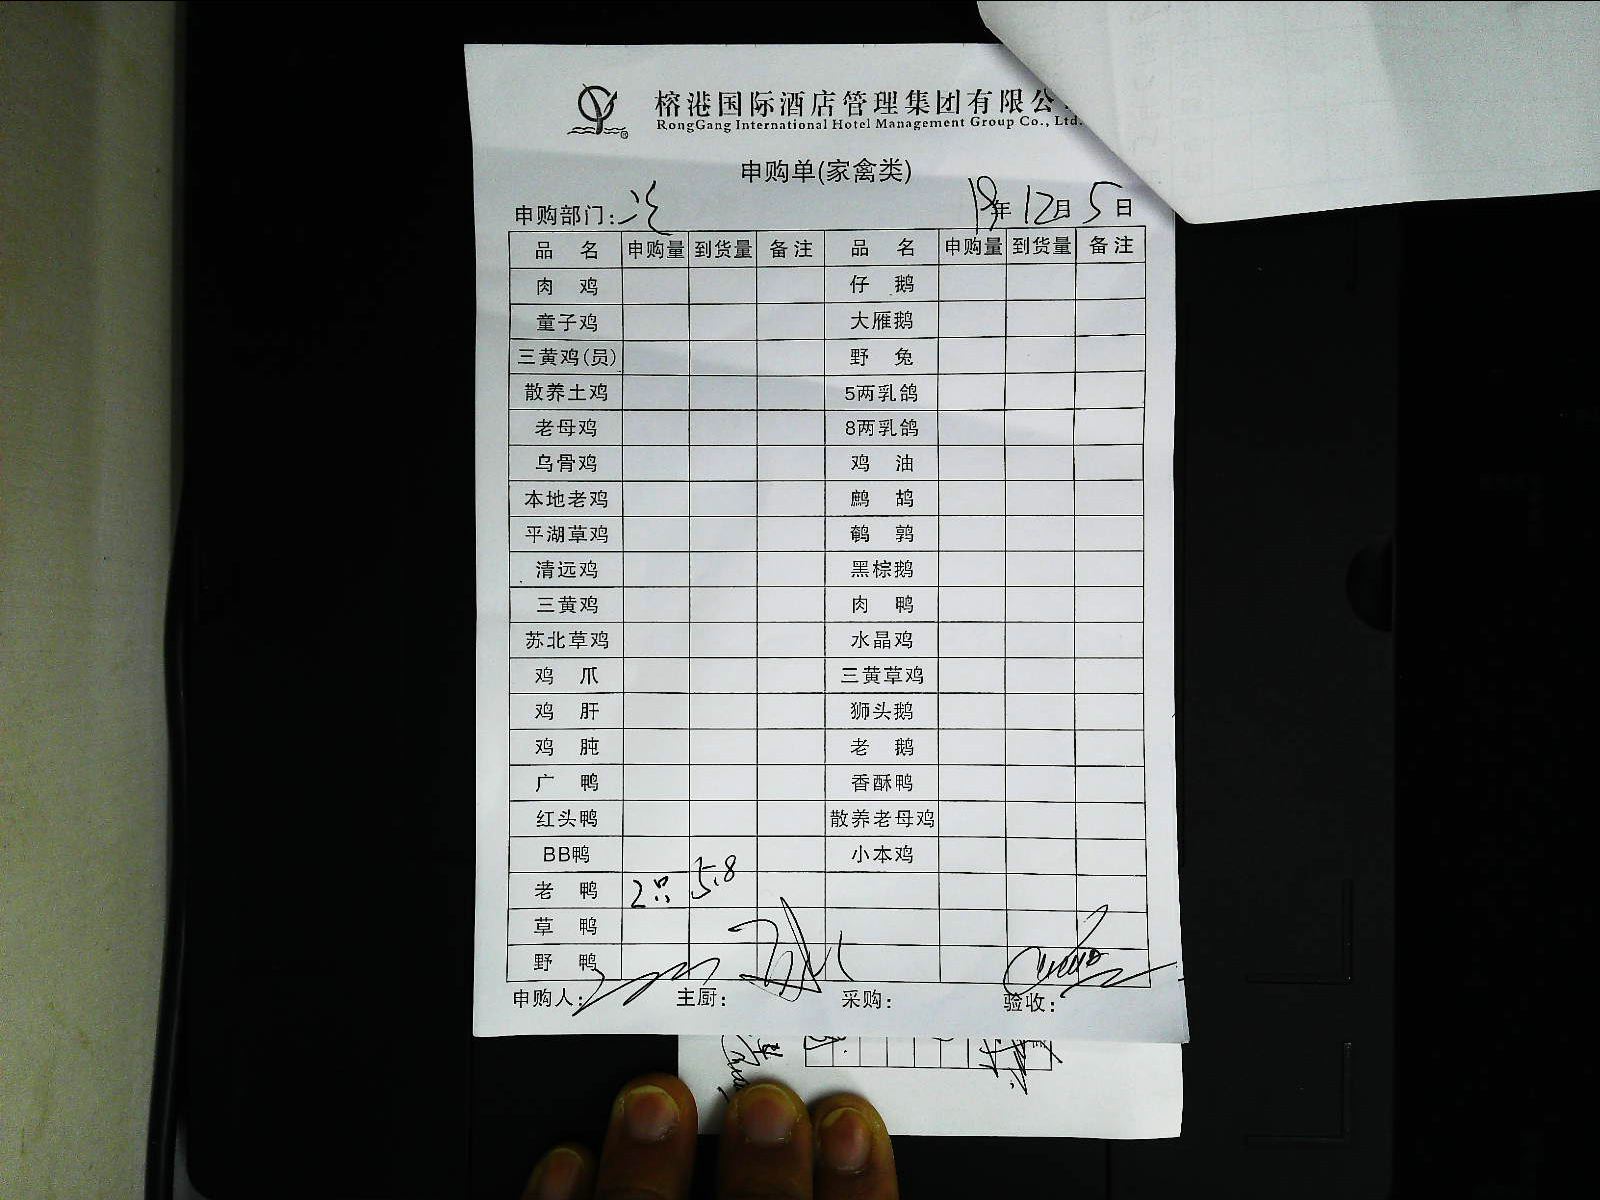 榕港国际酒店管理集团有限公
RongGang International Hotel Management Group Co., Ltd.
申购单(家禽类)
申购部门: 19年12月5日
品 名 申购量 到货量 备注 品 名 申购量 到货量 备注
肉 鸡 仔 鹅
童子鸡 大雁鹅
三黄鸡(员) 野 兔
散养土鸡 5两乳鸽
老母鸡 8两乳鸽
乌骨鸡 鸡 油
本地老鸡 鹧 鸪
平湖草鸡 鹌 鹑
清远鸡 黑棕鹅
三黄鸡 肉 鸭
苏北草鸡 水晶鸡
鸡 爪 三黄草鸡
鸡 肝 狮头鹅
鸡 肫 老 鹅
广 鸭 香酥鸭
红头鸭 散养老母鸡
BB鸭 小本鸡
老 鸭 2只 5.8
草 鸭
野 鸭
申购人: 主厨: 采购: 验收: